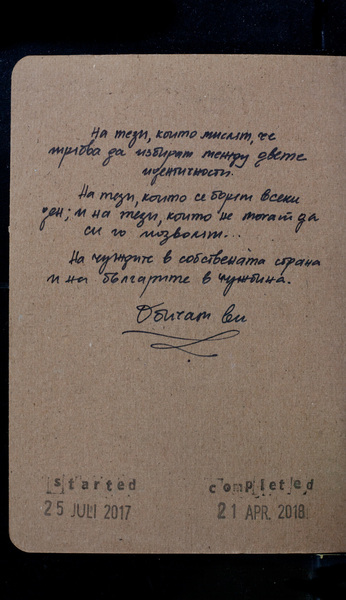 На тези, които мислят, че
трябва да избират между двете
идентичности.
На тези, които се борят всеки
ден; и на тези, които не могат да
си го позволят...
На чуждите в собствената страна
и на българите в чужбина.
Обичам ви
started
25 JULI 2017
completed
21 APR. 2018